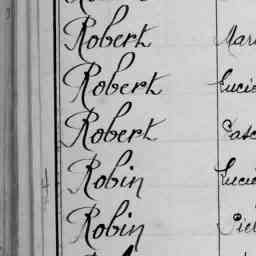 Robert Mari
Robert Lucie
Robert Gasc
Robin Lucie
Robin Pie